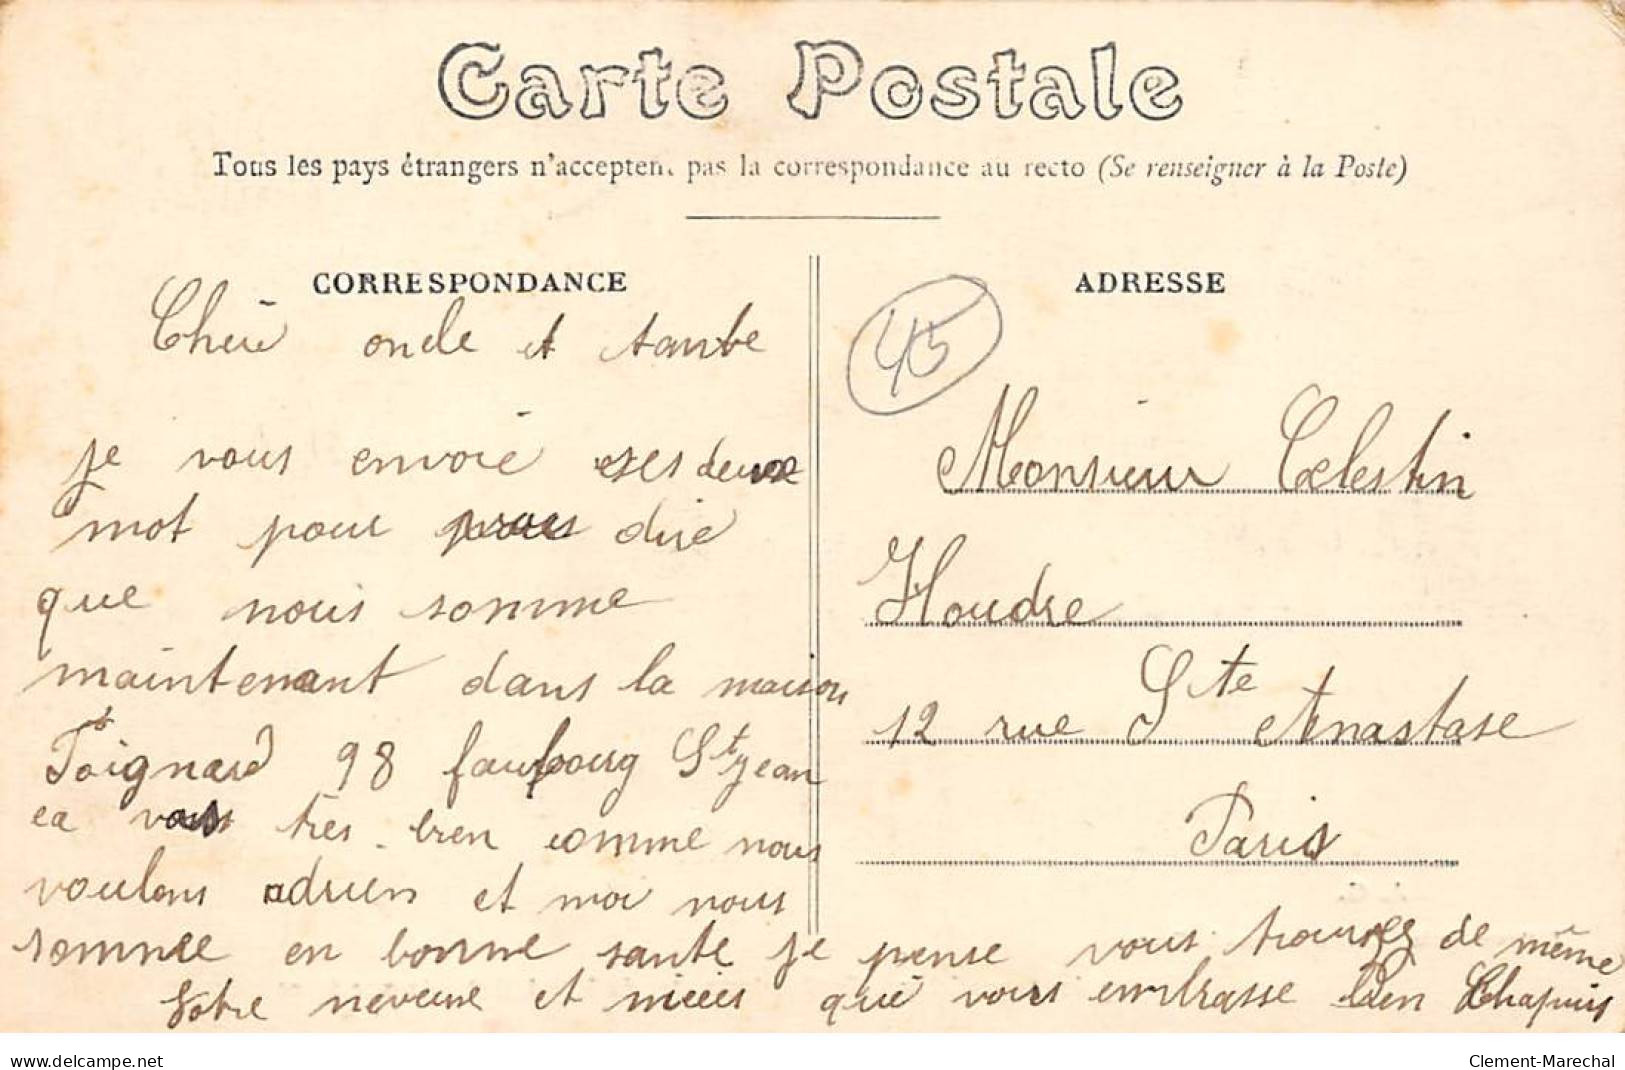 Carte Postale
Tous les pays étrangers n'acceptent pas la correspondance au recto (Se renseigner à la Poste)
CORRESPONDANCE
Cheri oncle et tante
je vous envoie ses deux
mot pour vous dire
que nous somme
maintenant dans la maison
Poignard 98 faubourg St jean
ca vas très bien comme nous
voulons adrien et moi nous
somme en bonne sante je pense vous trouvez de même
Votre neveuse et nieces que vous embrasse bien Chapuis
ADRESSE
45
Monsieur Celestin
Houdre
12 rue Ste Anastase
Paris
www.delcampe.net
Clement-Marechal